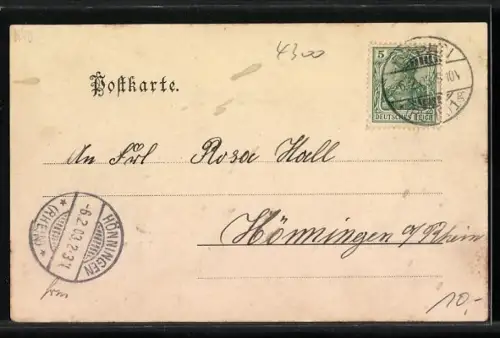 4300
5
DEUTSCHES REICH
Postkarte.
An Frl Rosa Hall
Hönningen a/Rhein
HÖNNINGEN
-6.2.03.2-3N.
* (RHEIN) *
10.-